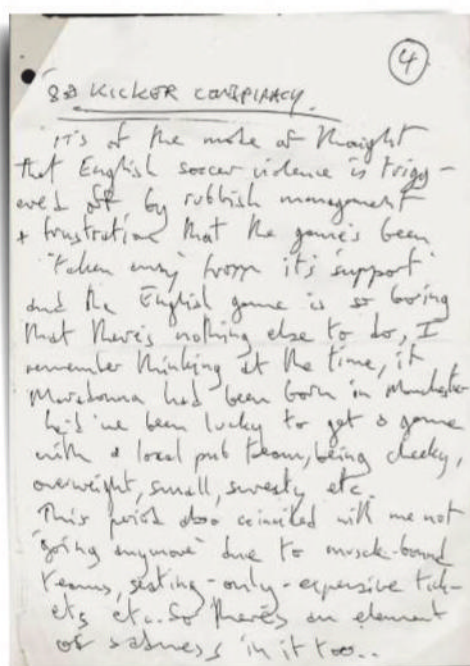 4
KICKER CONSPIRACY.
it's of the mode of thought
that English soccer violence is trigg-
ered off by rubbish management
+ frustration that the game's been
"taken away" from it's support
and the English game is so boring
that there's nothing else to do, I
remember thinking at the time, if
Maradonna had been born in Manchester
he'd've been lucky to get a game
with a local pub team, being cheeky,
overweight, small, sweaty etc.
This period also coincided with me not
'going anymore' due to muscle-bound
teams, seating-only-expensive tick-
ets etc.. So there's an element
of sadness in it too..